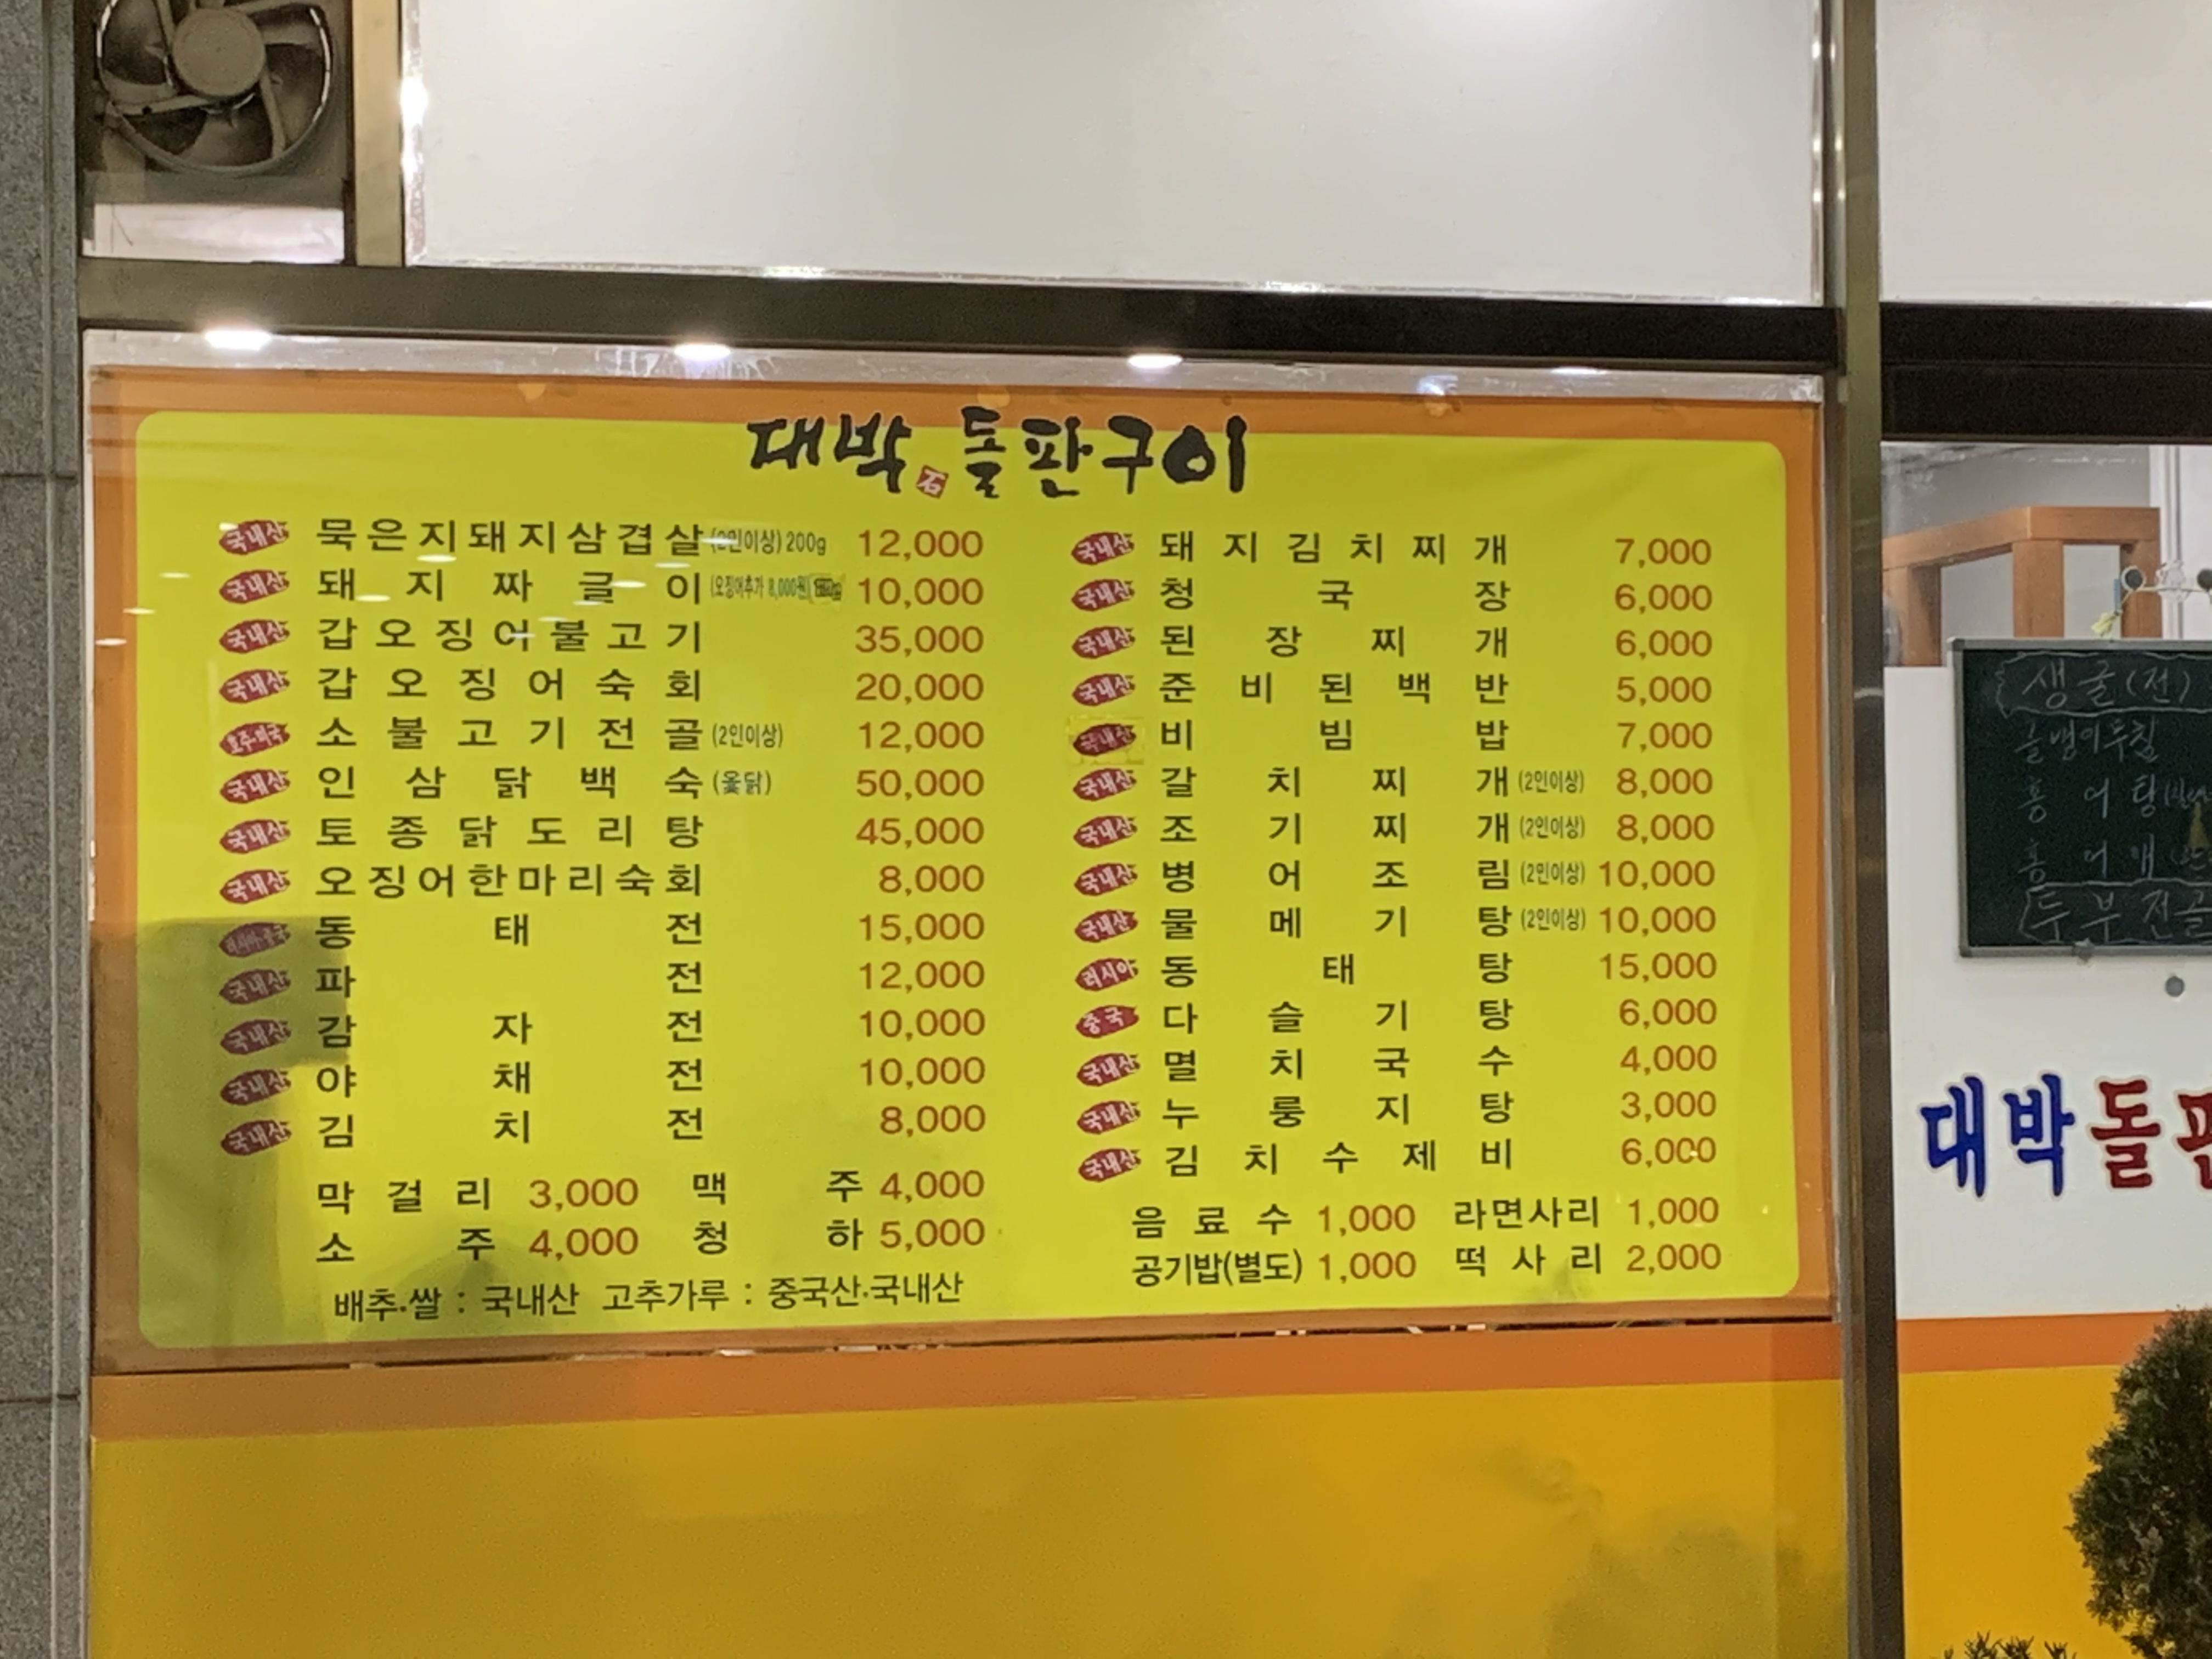 대박 石 돌판구이
국내산 묵은지돼지삼겹살 (2인이상) 200g 12,000
국내산 돼지짜글이 (오징어추가 8,000원) 10,000
국내산 갑오징어불고기 35,000
국내산 갑오징어숙회 20,000
호주·미국 소불고기전골 (2인이상) 12,000
국내산 인삼닭백숙 (옻닭) 50,000
국내산 토종닭도리탕 45,000
국내산 오징어한마리숙회 8,000
동태전 15,000
국내산 파전 12,000
국내산 감자전 10,000
국내산 야채전 10,000
국내산 김치전 8,000
막걸리 3,000 맥주 4,000
소주 4,000 청하 5,000
배추·쌀 : 국내산 고추가루 : 중국산·국내산
국내산 돼지김치찌개 7,000
국내산 청국장 6,000
국내산 된장찌개 6,000
국내산 준비된백반 5,000
국내산 비빔밥 7,000
국내산 갈치찌개 (2인이상) 8,000
국내산 조기찌개 (2인이상) 8,000
국내산 병어조림 (2인이상) 10,000
국내산 물메기탕 (2인이상) 10,000
러시아 동태탕 15,000
중국 다슬기탕 6,000
국내산 멸치국수 4,000
국내산 누룽지탕 3,000
국내산 김치수제비 6,000
음료수 1,000 라면사리 1,000
공기밥(별도) 1,000 떡사리 2,000
생굴(전)
홍어탕
두부전골
대박돌판